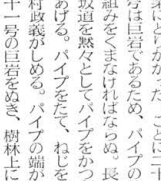 業にとりかかった。ここに十
号は巨岩であるため、パイプの
組みをくまなければならぬ。長
坂道を黙々としてパイプをかつ
あげる。パイプをたて、ねじを
村政義がしめる。パイプの端が
十一号の巨岩をぬき、樹林上に